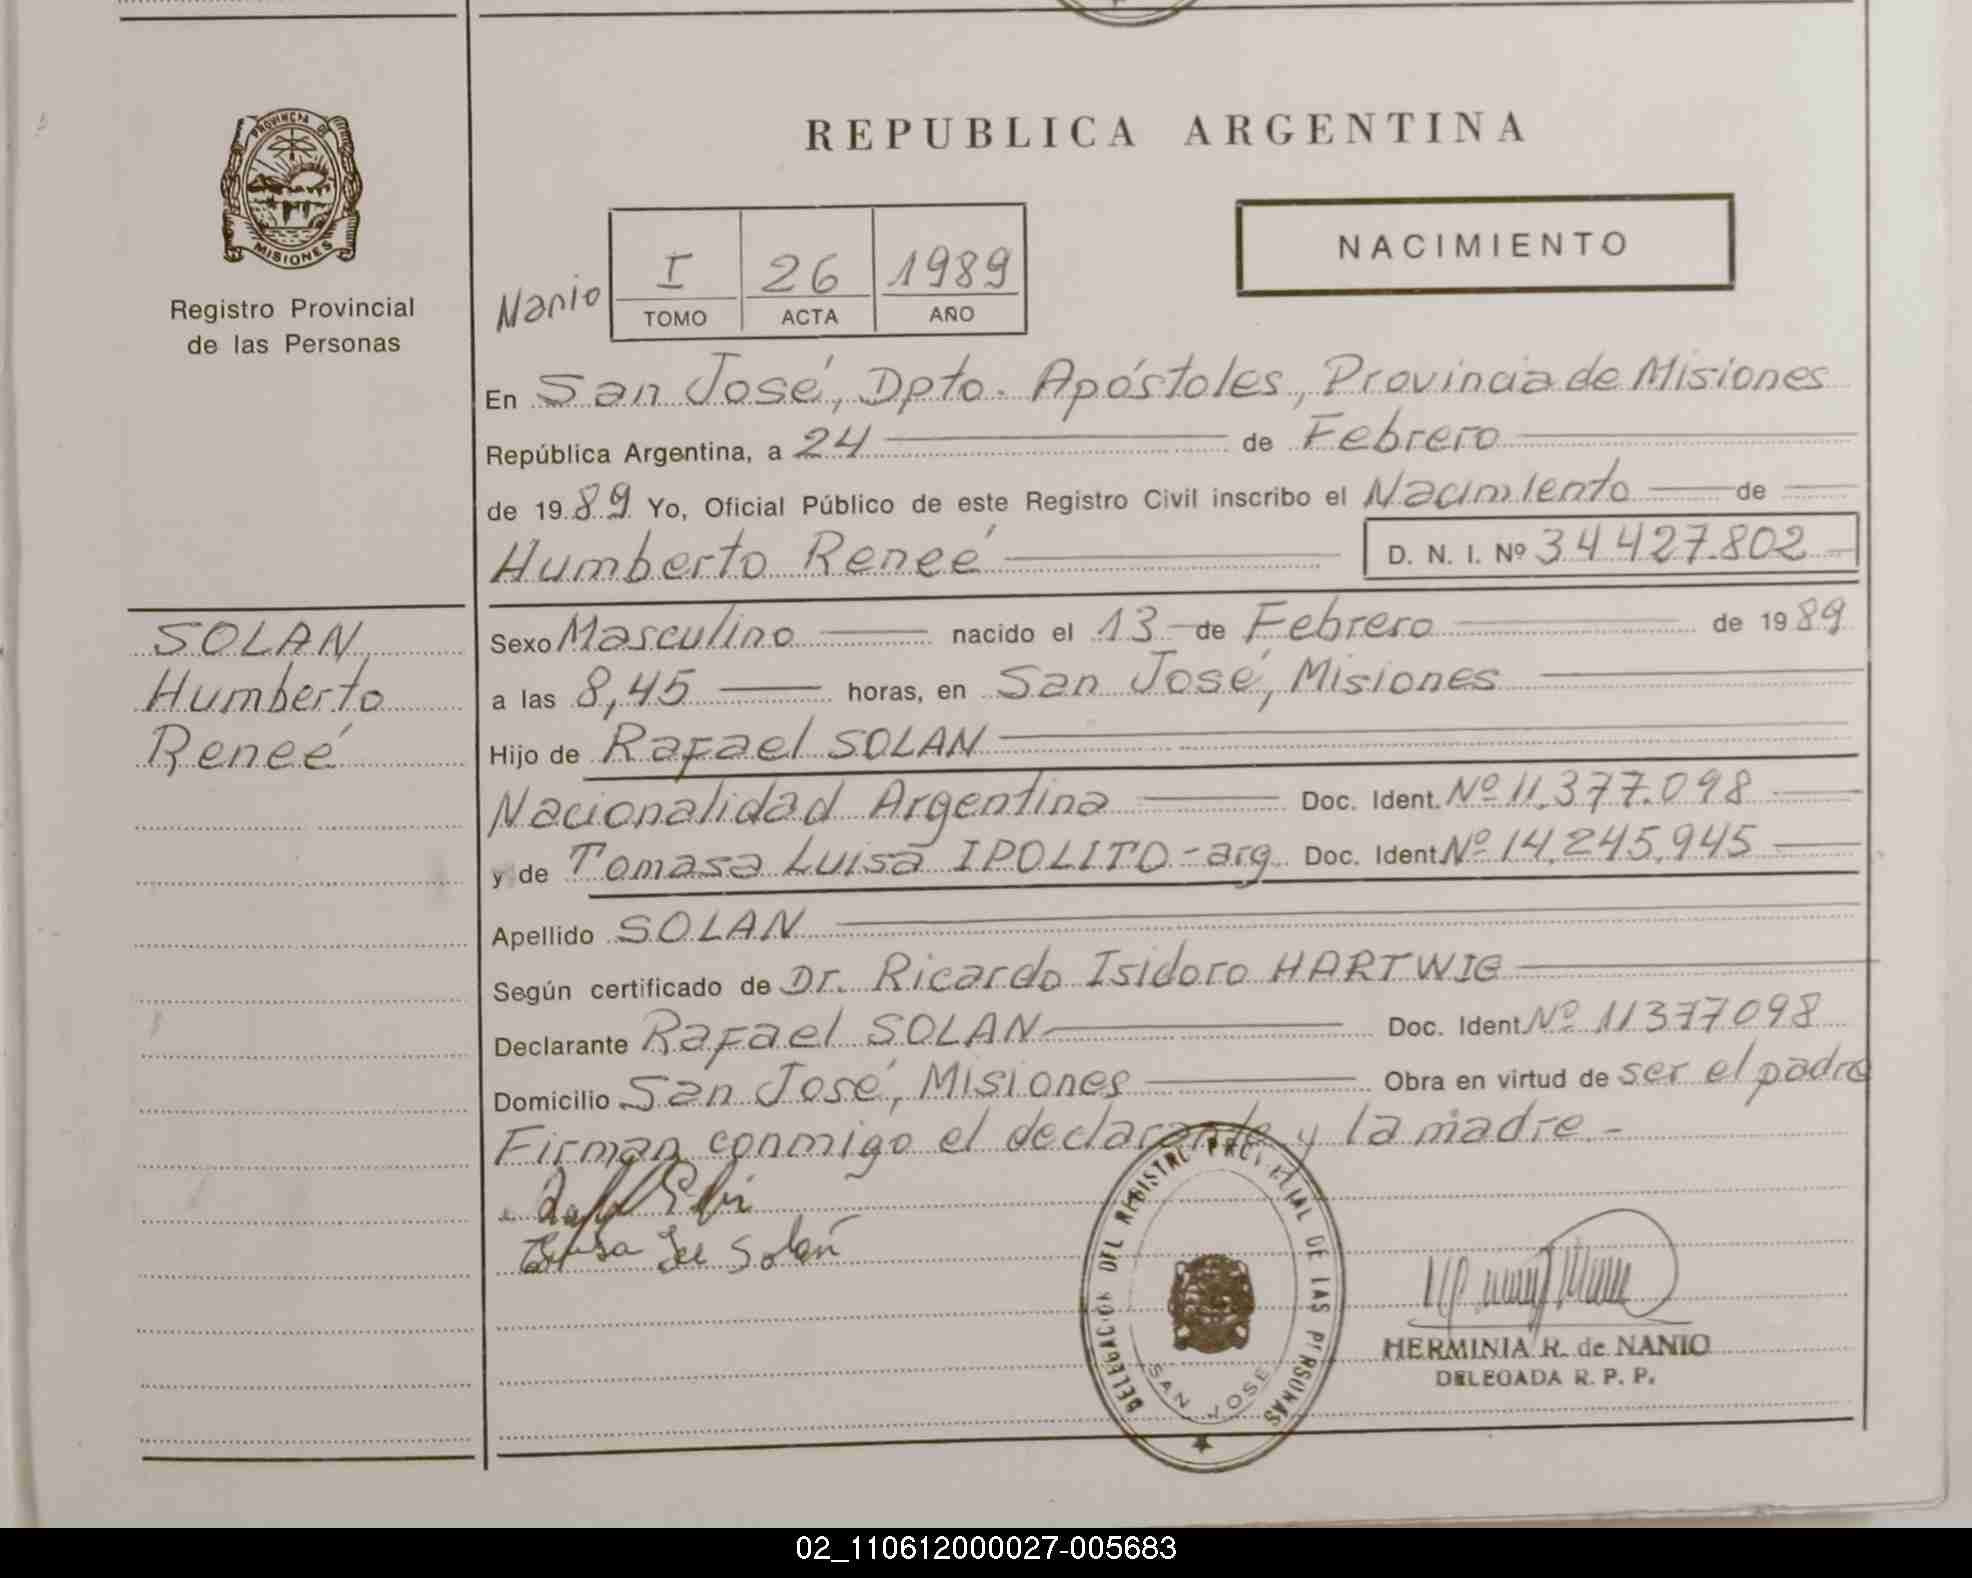 PROVINCIA DE
MISIONES
Registro Provincial
de las Personas
SOLAN
Humberto
Reneé
REPUBLICA ARGENTINA
NACIMIENTO
Nanio
I 26 1989
TOMO ACTA AÑO
En San José, Dpto. Apóstoles, Provincia de Misiones
República Argentina, a 24 de Febrero
de 1989 Yo, Oficial Público de este Registro Civil inscribo el Nacimiento de
Humberto Reneé D. N. I. Nº 34427.802
Sexo Masculino nacido el 13 de Febrero de 1989
a las 8,45 horas, en San José, Misiones
Hijo de Rafael SOLAN
Nacionalidad Argentina Doc. Ident. Nº 11.377.098
y de Tomasa Luisa IPOLITO - arg. Doc. Ident. Nº 14.245.945
Apellido SOLAN
Según certificado de Dr. Ricardo Isidoro HARTWIG
Declarante Rafael SOLAN Doc. Ident. Nº 11377098
Domicilio San José, Misiones Obra en virtud de ser el padre
Firman conmigo el declarante y la madre -
de Solan
DELEGACION DEL REGISTRO PROVINCIAL DE LAS PERSONAS
SAN JOSE
HERMINIA R. de NANIO
DELEGADA R. P. P.
02_110612000027-005683